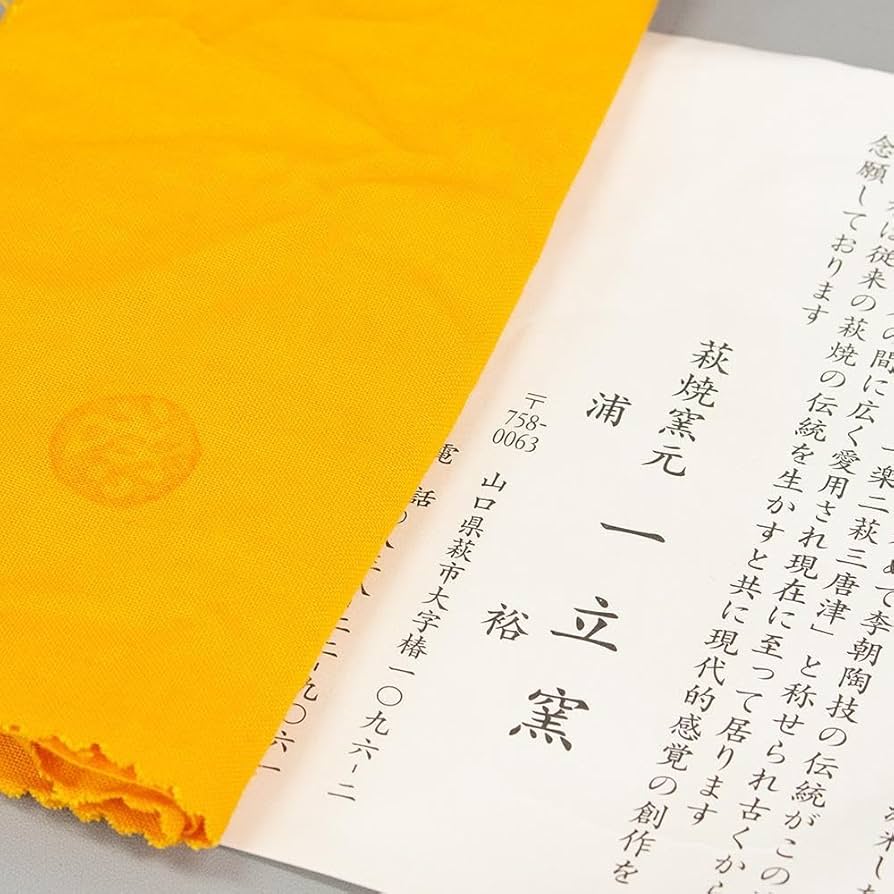 めて李朝陶技の伝統がこの
楽二萩三唐津」と称せられ古くから
の間に広く愛用され現在に至って居ります
は従来の萩焼の伝統を生かすと共に現代的感覚の創作を
念願しております
萩焼窯元
一立窯
浦 裕
〒758-0063 山口県萩市大字椿一〇九六-二
電話 二二-九〇六一